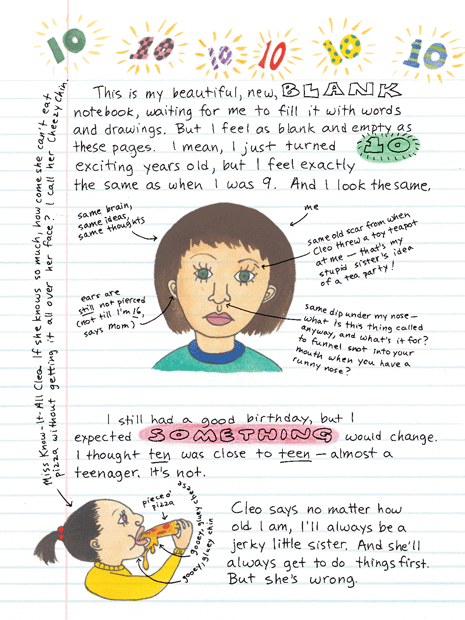 10 10 10 10 10 10
This is my beautiful, new, BLANK
notebook, waiting for me to fill it with words
and drawings. But I feel as blank and empty as
these pages. I mean, I just turned 10
exciting years old, but I feel exactly
the same as when I was 9. And I look the same.
same brain,
same ideas,
same thoughts
me
same old scar from when
Cleo threw a toy teapot
at me — that's my
stupid sister's idea
of a tea party!
ears are
still not pierced
(not till I'm 16,
says mom)
same dip under my nose—
what is this thing called
anyway, and what's it for?
to funnel snot into your
mouth when you have a
runny nose?
I still had a good birthday, but I
expected SOMETHING would change.
I thought ten was close to teen — almost a
teenager. It's not.
Miss Know-It-All Cleo. If she knows so much, how come she can't eat
pizza without getting it all over her face? I call her Cheezy Chin.
piece o'
pizza
gooey, gluey cheese
gooey, gluey chin
Cleo says no matter how
old I am, I'll always be a
jerky little sister. And she'll
always get to do things first.
But she's wrong.